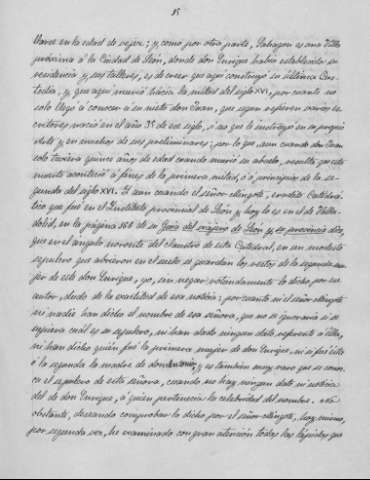 15
llares en la edad de vejez; y como por otra parte, Sahagun es una Villa
próxima á la Ciudad de León, donde don Enrique habia establecido su
residencia y sus talleres, es de creer que aqui construyó su última Cus-
todia, y que aqui murió hácia la mitad del siglo XVI, por cuanto no
solo llegó á conocer á su nieto don Juan, que segun refieren varios es-
critores nació en el año 35 de ese siglo, sino que le instruyó en su propio
arte y en muchos de sus preliminares; por lo que, aun cuando don Juan
solo tuviera quince años de edad cuando murió su abuelo, resulta que esta
muerte aconteció á fines de la primera mitad, ó á principios de la se-
gunda del siglo XVI. Y aun cuando el señor Mingote, erudito Catedrá-
tico que fué en el Instituto provincial de León y hoy lo es en el de Valla-
dolid, en la página 186 de su Guia del viajero de León y su provincia dice,
que en el ángulo noroeste del claustro de esta Catedral, en un modesto
sepulcro que abrieron en el suelo se guardan los restos de la segunda mu-
jer de este don Enrique, yo, sin negar rotundamente lo dicho por ese
autor, dudo de la exactitud de esa noticia; por cuanto ni el señor Mingote
ni nadie han dicho el nombre de esa señora, que no se ignoraria si se
supiera cuál es su sepulcro, ni han dado ningun dato referente á ella,
ni han dicho quién fué la primera mujer de don Enrique, ni si fué ésta
ó la segunda la madre de don Antonio; y es tambien muy raro que se conoz-
ca el sepulcro de esta señora, cuando no hay ningun dato ni noticia
del de don Enrique, á quien pertenecia la celebridad del nombre. No
obstante, deseando comprobar lo dicho por el señor Mingote, hoy mismo,
por segunda vez, he examinado con gran atención todas las lápidas que